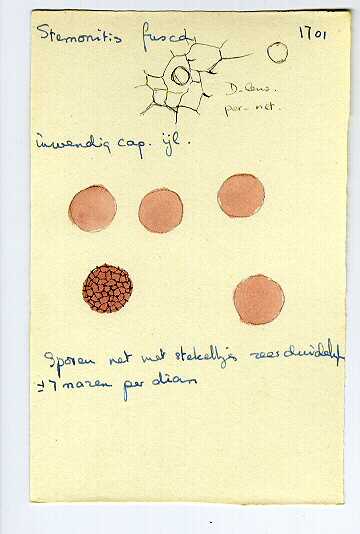 Stemonitis fusca, 1701
per. net.
inwendig cap. ijl.
Sporen net met stekeltjes zeer duidelijk
± 7 mazen per diam